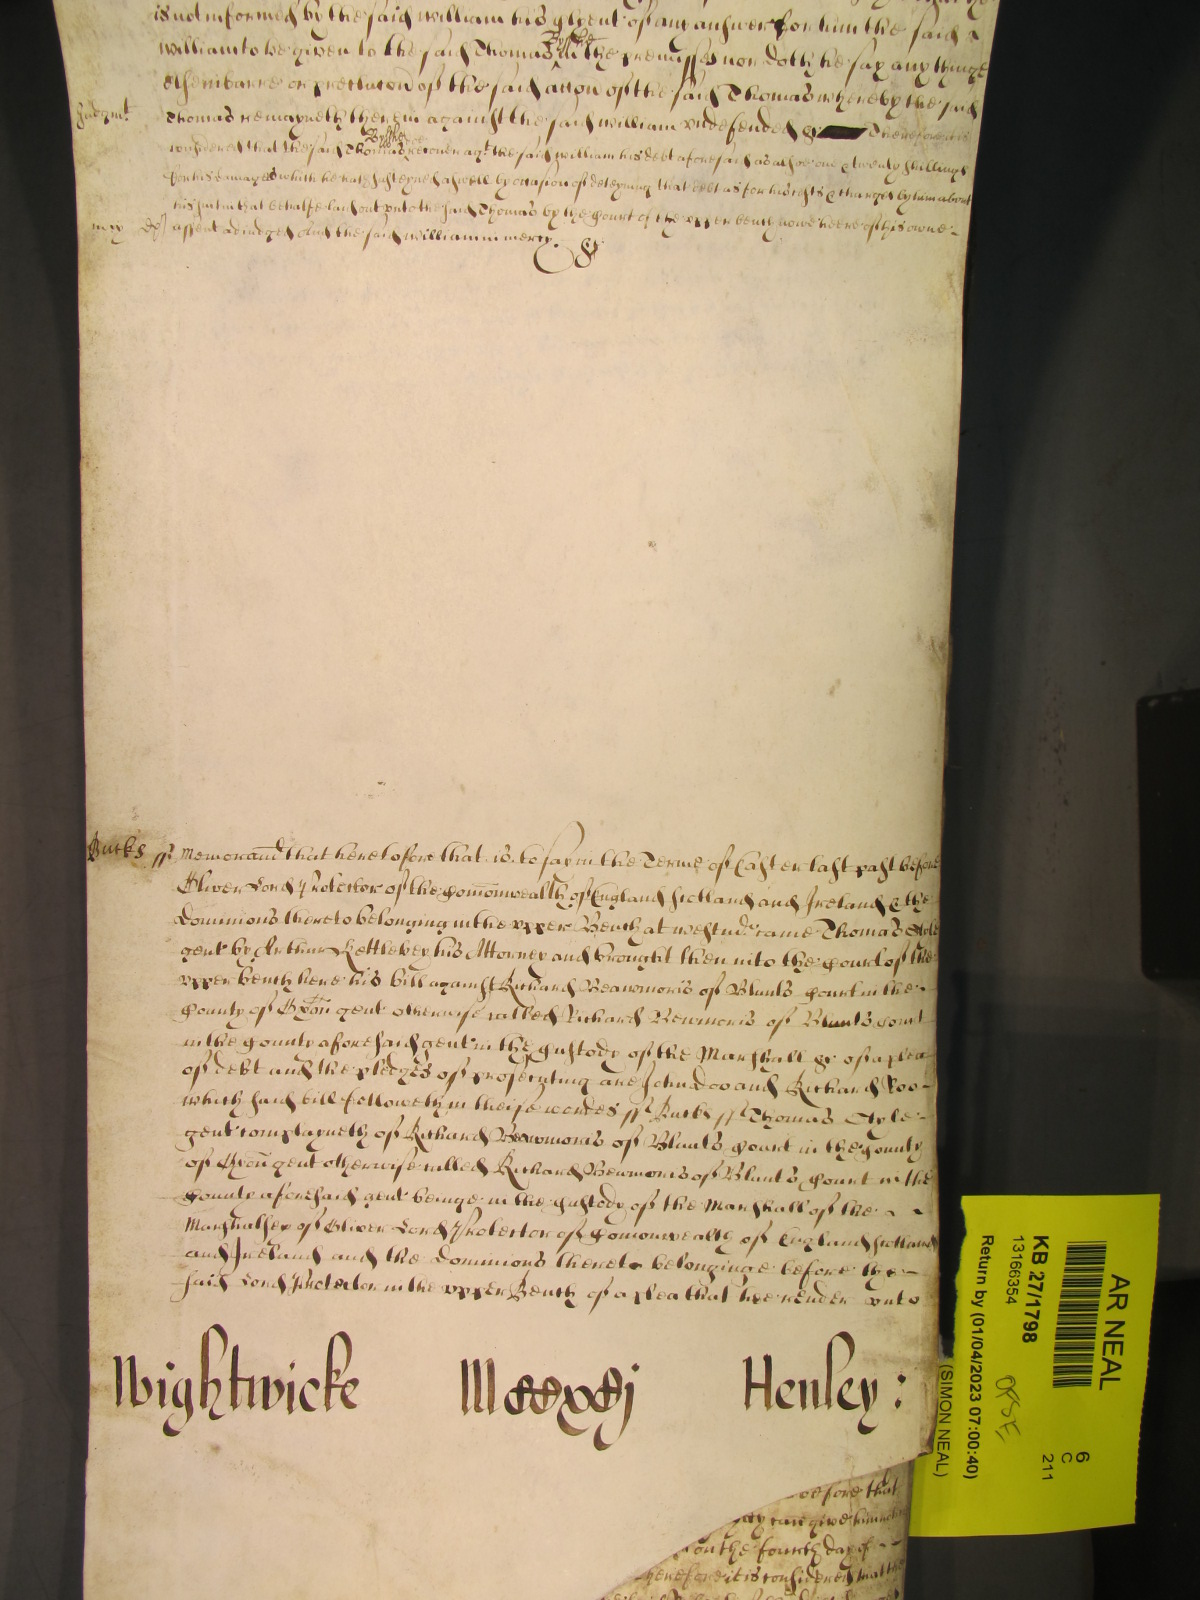 is not informed by the said William his Clyent of any answer for him the said
William to be given to the said Thomas Byshe in the premisses nor doth he say any thinge
else in barre or preclusion of the said accon of the said Thomas whereby the said
Judgmt Thomas remayneth therein against the said William undefended &c Therefore it is
considered that the said Thomas Byshe recover agt the said William his debt aforesaid as alsoe one & twenty shillings
for his damages which he hath susteyned aswell by occasion of deteyning that debt as for his costs & charges by him about
his suit in that behalfe laid out unto the said Thomas by the Court of the upper bench nowe heere of his owne
mcy assent adiudged And the said William in mercy. &c
Bucks ss Memorand that heretofore that is to say in the Terme of Easter last past before
Oliver Lord Protector of the Comonwealth of England Scotland and Ireland & the
Dominions thereto belonging in the upper Bench at Westmr came Thomas Style
gent by Arthur Kettleby his Attorney and brought then into the Court of the
upper bench here his bill against Richard Beawmoris of Blunts Court in the
County of Oxon gent otherwise called Richard Bewmoris of Blunts Court
in the County aforesaid gent in the Custody of the Marshall &c of a plea
of debt and the pledges of prosecuting are John Doo and Richard Roo
which said bill followeth in theise wordes ss Bucks ss Thomas Style
gent complayneth of Richard Beawmoris of Blunts Court in the County
of Oxon gent otherwise called Richard Bewmoris of Blunts Court in the
County aforesaid gent beinge in the Custody of the Marshall of the
Marshalsey of Oliver Lord Protector of Comonwealth of England Scotland
and Ireland and the Dominions thereto belonginge before the
said Lord Protector in the upper Bench of a plea that hee render unto
Wightwicke Henley :
before that
on the fourth day of
therefore it is considered that the
AR NEAL
KB 27/1798
13166354
Return by (01/04/2023 07:00:40)
(SIMON NEAL)
6
C
211